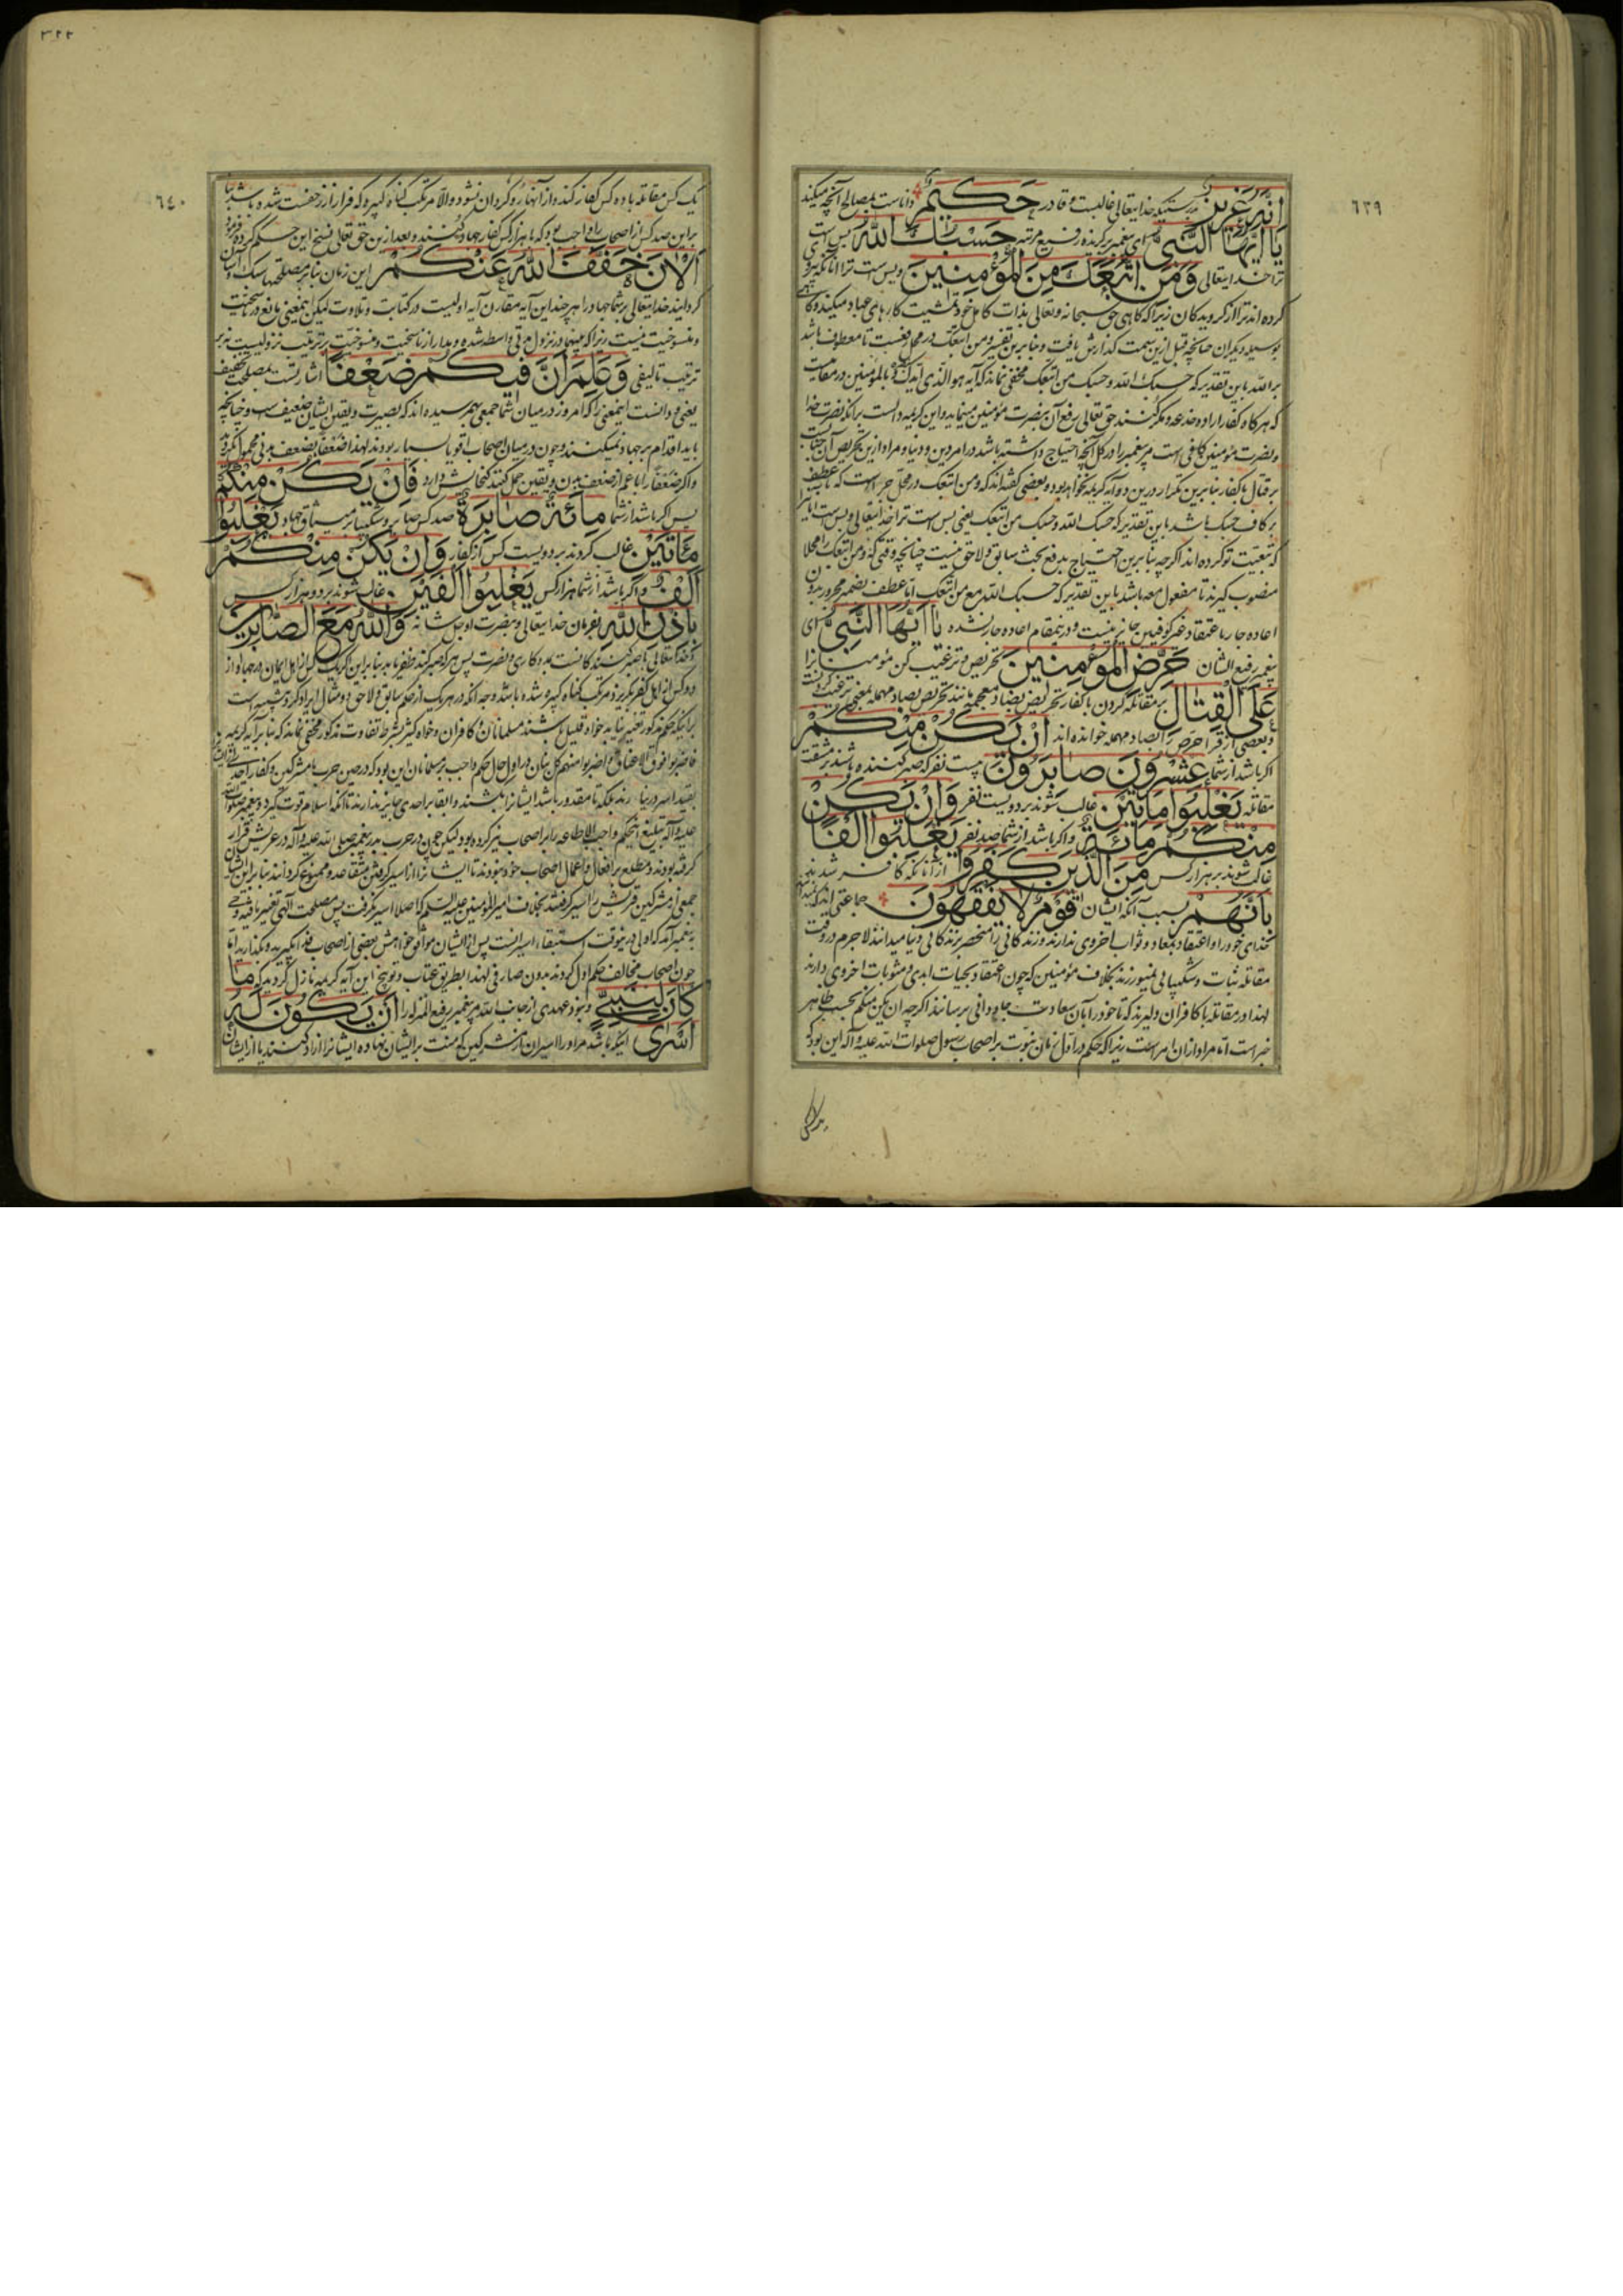 ٦٣٩
انه عزیز بدرستیکه خدایتعالی غالبست و قادر حکیم داناست بمصالح آنچه میکند
یا ایها النبی ای پیغمبر برگزیده رفیع مرتبه حسبک الله بس است
ترا خدایتعالی ومن اتبعک من المؤمنین و بس است ترا آنانکه پیروی
کرده‌اند ترا از گرویدگان زیرا که گاهی حق سبحانه و تعالی بذات کامل خود تمشیت کارهای عباد میکند و گاه
بوسیله دیگران چنانچه قبل ازین سمت گذارش یافت و بنابرین تفسیر ومن اتبعک در محل رفعست تا معطوف باشد
بر الله باین تقدیر که حسبک الله وحسبک من اتبعک مخفی نماند که آیه هو الذی ایدک بنصره وبالمؤمنین در مقامیست
که هر گاه کفار اراده خدعه و مکر کنند حق تعالی رفع آن بنصرت مؤمنین مینماید و این کریمه دالست برآنکه نصرت خدا
ونصرت مؤمنین کافی است مر پیغمبر را در کل آنچه احتیاج داشته باشد در امر دین و دنیا و مراد ازین تحریص آن جنابست
بر قتال با کفار بنابرین تکرار درین دو آیه کریمه نخواهد بود و بعضی گفته‌اند که ومن اتبعک در محل جر است که تا عطف
بر کاف حسبک باشد باین تقدیر که حسبک الله وحسب من اتبعک یعنی بس است ترا خدایتعالی و بس است آنانرا
که تبعیت تو کرده‌اند اگر چه بنابرین احتیاج بدفع بحث سابق و لاحق نیست چنانچه وقتی که ومن اتبعک را محلا
منصوب گیرند تا مفعول معه باشد باین تقدیر که حسبک الله مع من اتبعک اما عطف بضمیر مجرور بدون
اعاده جار باعتقاد غیر کوفیین جایز نیست و درینمقام اعاده جار نشده یا ایها النبی ای
پیغمبر رفیع الشان حرض المؤمنین تحریص و ترغیب کن مؤمنانرا
علی القتال بر مقاتله کردن با کفار تحریض بضاد معجمه مانند تحریص بصاد مهمله بمعنی ترغیب کردنست
وبعضی از قرا حرص را بصاد مهمله خوانده‌اند ان یکن منکم
اگر باشد از شما عشرون صابرون بیست نفر که صبر کننده باشند بر مشقت
مقاتله یغلبوا مائتین غالب شوند بر دویست نفر وان یکن
منکم مائة و اگر باشد از شما صد نفر یغلبوا الفا
غالب شوند بر هزار کس من الذین کفروا از آنانکه کافر شدند
بانهم بسبب آنکه ایشان قوم لا یفقهون جماعتی‌اند که نمیدانند
خدای خود را و اعتقاد بمعاد و ثواب اخروی ندارند و زندگانی را منحصر بزندگانی دنیا میدانند لاجرم در وقت
مقاتله ثبات و شکیبائی نمیورزند بخلاف مؤمنین که چون اعتقاد بحیات ابدی و مثوبات اخروی دارند
لهذا در مقاتله با کافران دلیرند که تا خود را بآن سعادت جاودانی برسانند اگر چه ان یکن منکم بحسب ظاهر
خبر است اما مراد از آن امر است زیرا که حکم در اول زمان نبوت بر اصحاب رسول صلوات الله علیه و آله این بود که
٣٢٢
٦٤٠
یک کس مقاتله با ده کس کفار کند و از آنها روگردان نشود والا مرتکب گناه کبیره که فرار از زحفست شده باشد بنا
براین صد کس از اصحاب را واجب بود که با هزار کس کفار جهاد کنند و بعد ازین حق تعالی نسخ این حکم کرده فرمود
الان خفف الله عنکم این زمان بنابر مصلحتها سبک و آسان
گردانید خدایتعالی بر شما جهاد را هر چند این آیه مقارن آیه اولیست در کتابت و تلاوت لیکن اینمعنی مانع ناسخیت
و منسوخیت نیست زیرا که بینهما در نزول مدتی واسطه شده و مدار ناسخیت و منسوخیت بر ترتیب نزولیست نه بر
ترتیب تالیفی وعلم ان فیکم ضعفا اشارتست بمصلحت تخفیف
یعنی و دانست اینمعنی را که امروز در میان شما جمعی بهم رسیده‌اند که بصیرت و یقین ایشان ضعیف است و چنانچه
باید اقدام بر جهاد نمیکنند و چون در میان اصحاب اقویا بسیار بودند لهذا ضعفا بضعف بدنی محمول نکردند
واگر ضعفا را اعم از ضعف بدن و یقین حمل کنند گنجایش دارد فان یکن منکم
پس اگر باشد از شما مائة صابرة صد کس صابر و شکیبا بر مشاق جهاد یغلبوا
مائتین غالب گردند بر دویست کس از کفار وان یکن منکم
الف و اگر باشد از شما هزار کس یغلبوا الفین غالب شوند بر دو هزار کس
باذن الله بفرمان خدایتعالی و نصرت او جل شانه والله مع الصابرین
و خدایتعالی با صبر کنندگانست بمددکاری و نصرت پس هر که صبر کند ظفر یابد بنابر این اگر یک کس از اهل ایمان در جهاد از
دو کس از اهل کفر بگریزد مرتکب گناه کبیره شده باشد وجه آنکه در هر یک از حکم سابق و لاحق دو مثال ایراد کرد تنبیه است
برآنکه حکم مذکور تغییر نیابد خواه قلیل باشند مسلمانان و کافران و خواه کثیر بشرط تفاوت مذکور مخفی نماند که بنابر آیه کریمه
فاضربوا فوق الاعناق واضربوا منهم کل بنان در اول حال حکم واجب بر مسلمانان این بود که در حین حرب با مشرکین و کفار احدی را
بقید اسر در نیارند بلکه تا مقدور باشد ایشانرا بکشند و ابقا بر احدی جایز ندارند تا آنکه اسلام قوت گیرد و پیغمبر صلوات الله
علیه و آله تبلیغ این حکم واجب الاطاعه را بر اصحاب نیز کرده بود لیکن چون در حرب بدر پیغمبر صلی الله علیه و آله در عریش قرار
گرفته بودند و مطلع بر افعال و اعمال اصحاب خود نبودند تا ایشانرا از اسیر گرفتن متقاعد و ممنوع گردانند بنابر این ایشان
جمعی از مشرکین قریش را اسیر گرفتند بخلاف امیر المؤمنین علیه السلام که اصلا اسیر نگرفت پس مصلحت الهی تغییر یافته وحی
به پیغمبر آمد که اولی درینوقت استبقاء اسیرانست پس از ایشان موافق خواهش بعضی از اصحاب فدا بگیرید و بگذارید اما
چون اصحاب مخالف حکم اول کردند بدون صارفی لهذا بطریق عتاب و توبیخ این آیه کریمه نازل گردید که ما
کان لنبی و نبود عهدی از جانب الله مر پیغمبر رفیع المنزله را ان یکون له
اسری اینکه باشد مر او را اسیران از مشرکین که منت بر ایشان نهاده ایشانرا آزاد کنند یا از ایشان